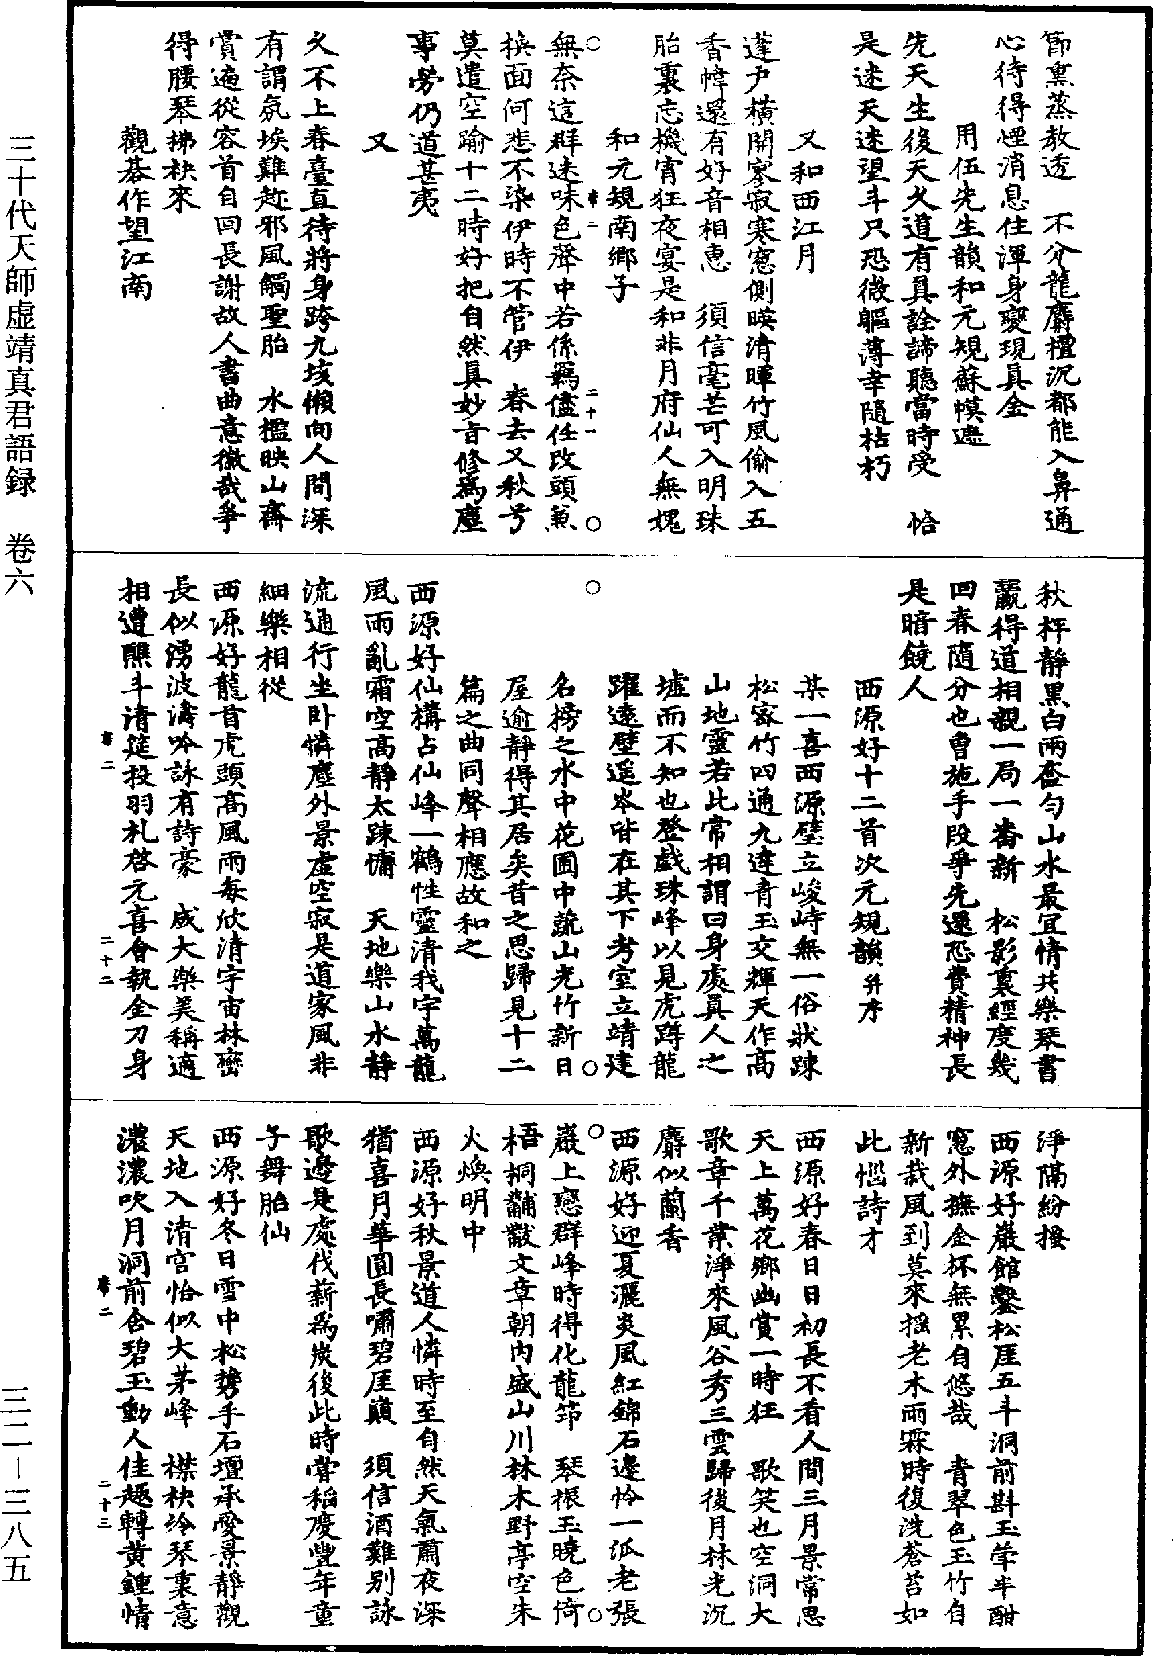 節熏蒸教透　不分龍麝檀沉都能入鼻通
心待得煙消息住渾身變現真金
用伍先生韻和元規蘇幙遮
先天生後天久道有真詮諦聽當時受　恰
是迷天迷望斗只恐微軀薄幸隨枯朽
又和西江月
蓬戶橫開寥寂寒窻側暎清暉竹風偷入五
香幃還有好音相惠　須信毫芒可入明珠
胎裏忘機宵狂夜宴是和非月府仙人無媿
和元規南鄉子
無奈這群迷味色聲中若係羈儘任改頭兼
換面何悲不染伊時不管伊　春去又秋兮
莫遣空踰十二時好把自然真妙旨修為塵
事勞仍道甚夷
又
久不上春臺直待將身跨九垓懶向人間深
有謂氛埃難趂邪風觸聖胎　水檻映山齋
賞遍從容首自回長謝故人書曲意徽哉爭
得腰琴拂袂來
觀棊作望江南
秋枰靜黑白兩奩勻山水最宜情共樂琴書
贏得道相親一局一番新　松影裏經度幾
回春隨分也曾施手段爭先還恐費精神長
是暗饒人
西源好十二首次元規韻并序
某一喜西源壁立峻峙無一俗狀踈
松密竹四通九達青玉交輝天作高
山地靈若此常相謂曰身處真人之
墟而不知也登戲珠峰以見虎蹲龍
躍遠壁遥岑皆在其下考室立靖建
名榜之水中花圃中蔬山光竹新日
屋逾靜得其居矣昔之思歸見十二
篇之曲同聲相應故和之
西源好仙構占仙峰一鶴性靈清我宇萬龍
風雨亂霜空高靜太踈慵　天地樂山水靜
流通行坐卧憐塵外景虛空寂是道家風非
細樂相從
西源好龍首虎頭高風雨每欣清宇宙林巒
長似湧波濤吟詠有詩豪　咸大樂美稱適
相遭醮斗清筵投羽札啓元喜會執金刀身
淨隔紛擾
西源好巖館鑿松厓五斗洞前斟玉斝半酣
窻外撫金杯無累自悠哉　青翠色玉竹自
新栽風到莫來搖老木雨霖時復洗蒼苔如
此惱詩才
西源好春日日初長不看人間三月景常思
天上萬花鄉幽賞一時狂　歌笑也空洞大
歌章千葉淨來風谷秀三雲歸後月林光沉
麝似蘭香
西源好迎夏灑炎風紅錦石邊怜一派老張
巖上戀群峰時得化龍筇　琴振玉曉色倚
梧桐黼黻文章朝內盛山川林木野亭空朱
火煥明中
西源好秋景道人憐時至自然天氣肅夜深
猶喜月華圓長嘯碧厓巔　須信酒難別詠
歌邊是處伐薪為炭後此時嘗稻慶豐年童
子舞胎仙
西源好冬日雪中松攜手石壇承愛景靜觀
天地入清宮恰似大茅峰　襟袂冷琴裏意
濃濃吹月洞前含碧玉動人佳趣轉黃鍾情
三十代天師虛靖真君語録　卷六
三二－三八五
卷二
二十一
卷二
二十二
卷二
二十三